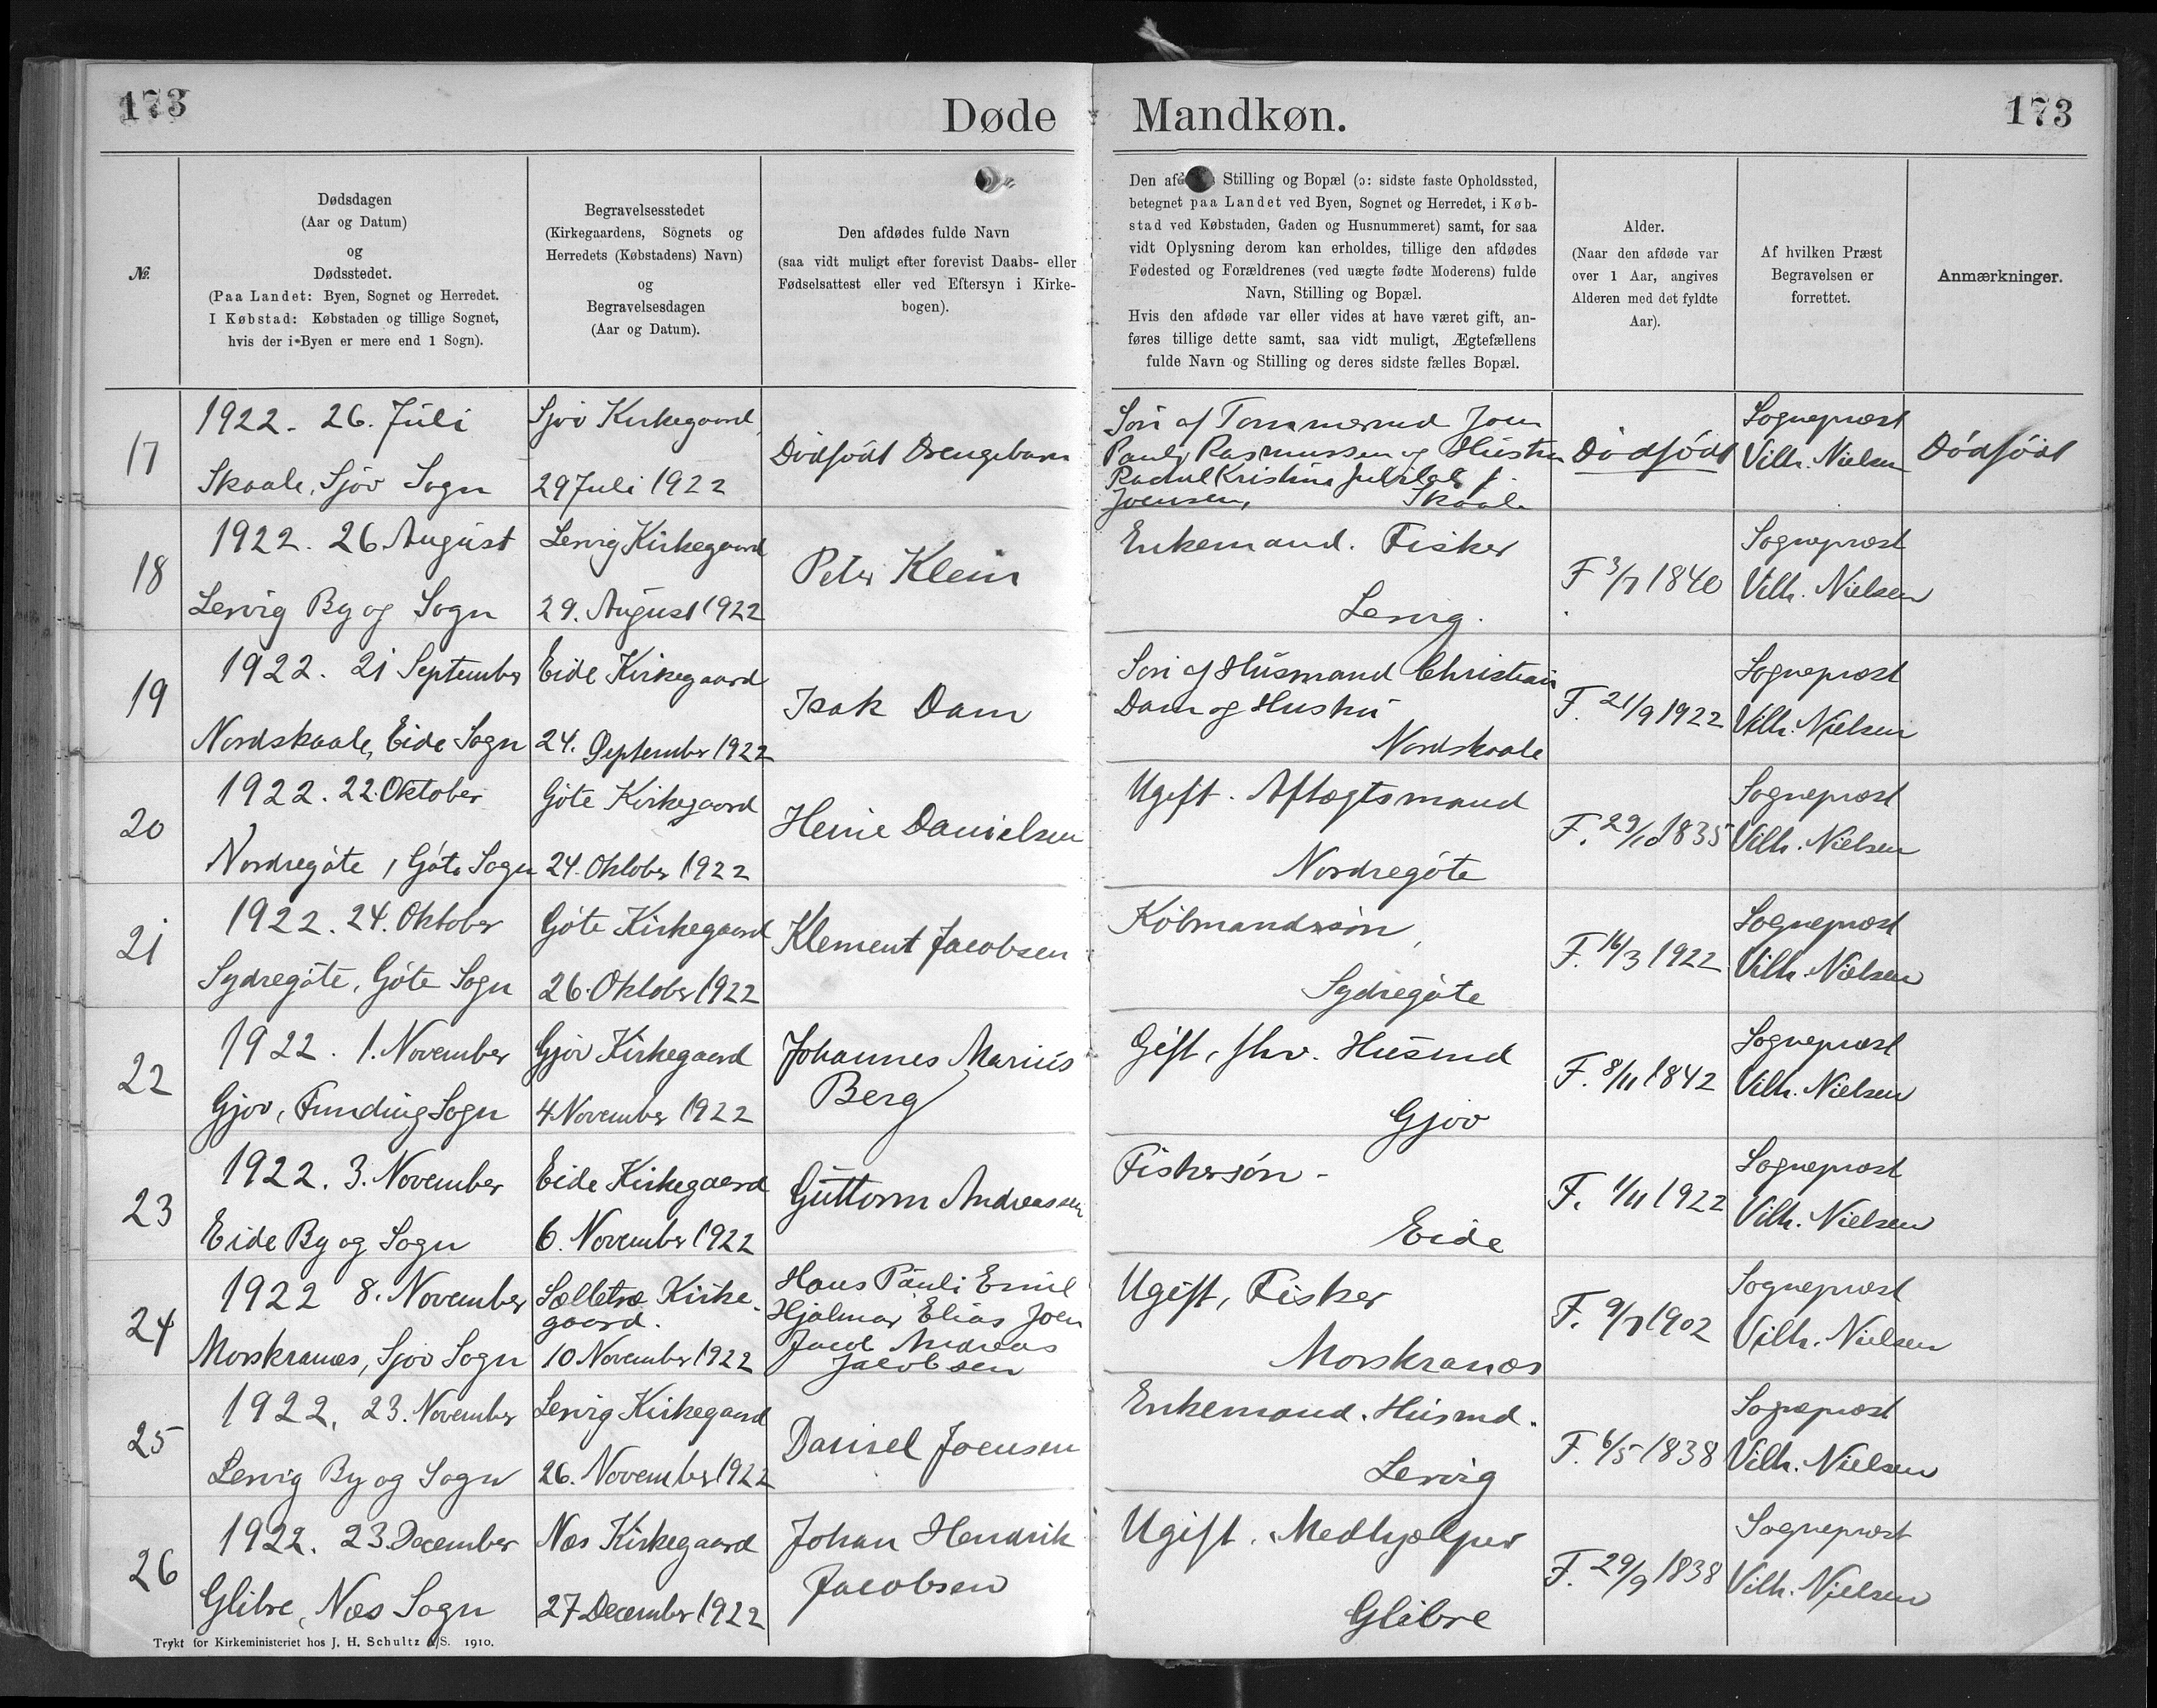 173
Døde
Mandkøn.
173
№
Dødsdagen
(Aar og Datum)
og
Dødsstedet.
(Paa Landet: Byen, Sognet og Herredet.
I Købstad: Købstaden og tillige Sognet,
hvis der i Byen er mere end 1 Sogn).
Begravelsesstedet
(Kirkegaardens, Sognets og
Herredets (Købstadens) Navn)
og
Begravelsesdagen
(Aar og Datum).
Den afdødes fulde Navn
(saa vidt muligt efter forevist Daabs- eller
Fødselsattest eller ved Eftersyn i Kirke-
bogen).
Stilling og Bopæl (ɔ: sidste faste Opholdssted,
betegnet paa Landet ved Byen, Sognet og Herredet, i Køb-
stad ved Købstaden, Gaden og Husnummeret) samt, for saa
vidt Oplysning derom kan erholdes, tillige den afdødes
Fødested og Forældrenes (ved uægte fødte Moderens) fulde
Navn, Stilling og Bopæl.
Hvis den afdøde var eller vides at have været gift, an-
føres tillige dette samt, saa vidt muligt, Ægtefællens
fulde Navn og Stilling og deres sidste fælles Bopæl.
Alder.
(Naar den afdøde var
over 1 Aar, angives
Alderen med det fyldte
Aar).
Af hvilken Præst
Begravelsen er
forrettet.
Anmærkninger.
17
1922. 26. Juli
Skaale, Sjov Sogn
Sjov Kirkegaard
29 Juli 1922
Dødfødt Drengebarn
Søn af Tømmermd Joen
Pauli Rasmussen og Hustru
Kristine f.
Joensen, Skaale
Dødfødt
Sognepræst
Vilh. Nielsen
Dødfødt
18
1922. 26 August
Lervig By og Sogn
Lervig Kirkegaard
29. August 1922
Peter Klein
Enkemand. Fisker
Lervig.
F 3/7 1840
Sognepræst
Vilh. Nielsen
19
1922. 21 September
Nordskaale, Eide Sogn
Eide Kirkegaard
24. September 1922
Isak Dam
Søn af Husmand Christian
Dam og Hustru
Nordskaale
F. 21/9 1922
Sognepræst
Vilh. Nielsen
20
1922. 22. Oktober
Nordregøte, Gøte Sogn
Gøte Kirkegaard
24. Oktober 1922
Heine Danielsen
Ugift. Aftægtsmand
Nordregøte
F. 29/10 1835
Sognepræst
Vilh. Nielsen
21
1922. 24. Oktober
Sydregøte, Gøte Sogn
Gøte Kirkegaard
26. Oktober 1922
Klement Jacobsen
Købmandssøn,
Sydregøte
F. 16/3 1922
Sognepræst
Vilh. Nielsen
22
1922. 1. November
Gjov, Funding Sogn
Gjov Kirkegaard
4 November 1922
Johannes Marius
Berg
Gift, fhv. Husmd
Gjov
F. 8/11 1842
Sognepræst
Vilh. Nielsen
23
1922. 3. November
Eide By og Sogn
Eide Kirkegaard
6. November 1922
Guttorm Andreassen
Fiskersøn -
Eide
F. 1/11 1922
Sognepræst
Vilh. Nielsen
24
1922 8. November
Morskranæs, Sjov Sogn
Sælletræ Kirke-
gaard.
10 November 1922
Hans Pauli Emil
Hjalmar Elias Joen
Jacob Andreas
Jacobsen
Ugift, Fisker
Morskranæs
F. 9/7 1902
Sognepræst
Vilh. Nielsen
25
1922. 23. November
Lervig By og Sogn
Lervig Kirkegaard
26. November 1922
Daniel Joensen
Enkemand. Husmd.
Lervig
F. 6/5 1838
Sognepræst
Vilh. Nielsen
26
1922. 23 December
Glibre, Næs Sogn
Næs Kirkegaard
27 December 1922
Johan Hendrik
Jacobsen
Ugift. Medhjælper
Glibre
F. 29/9 1838
Sognepræst
Vilh. Nielsen
Trykt for Kirkeministeriet hos J. H. Schultz A/S. 1910.